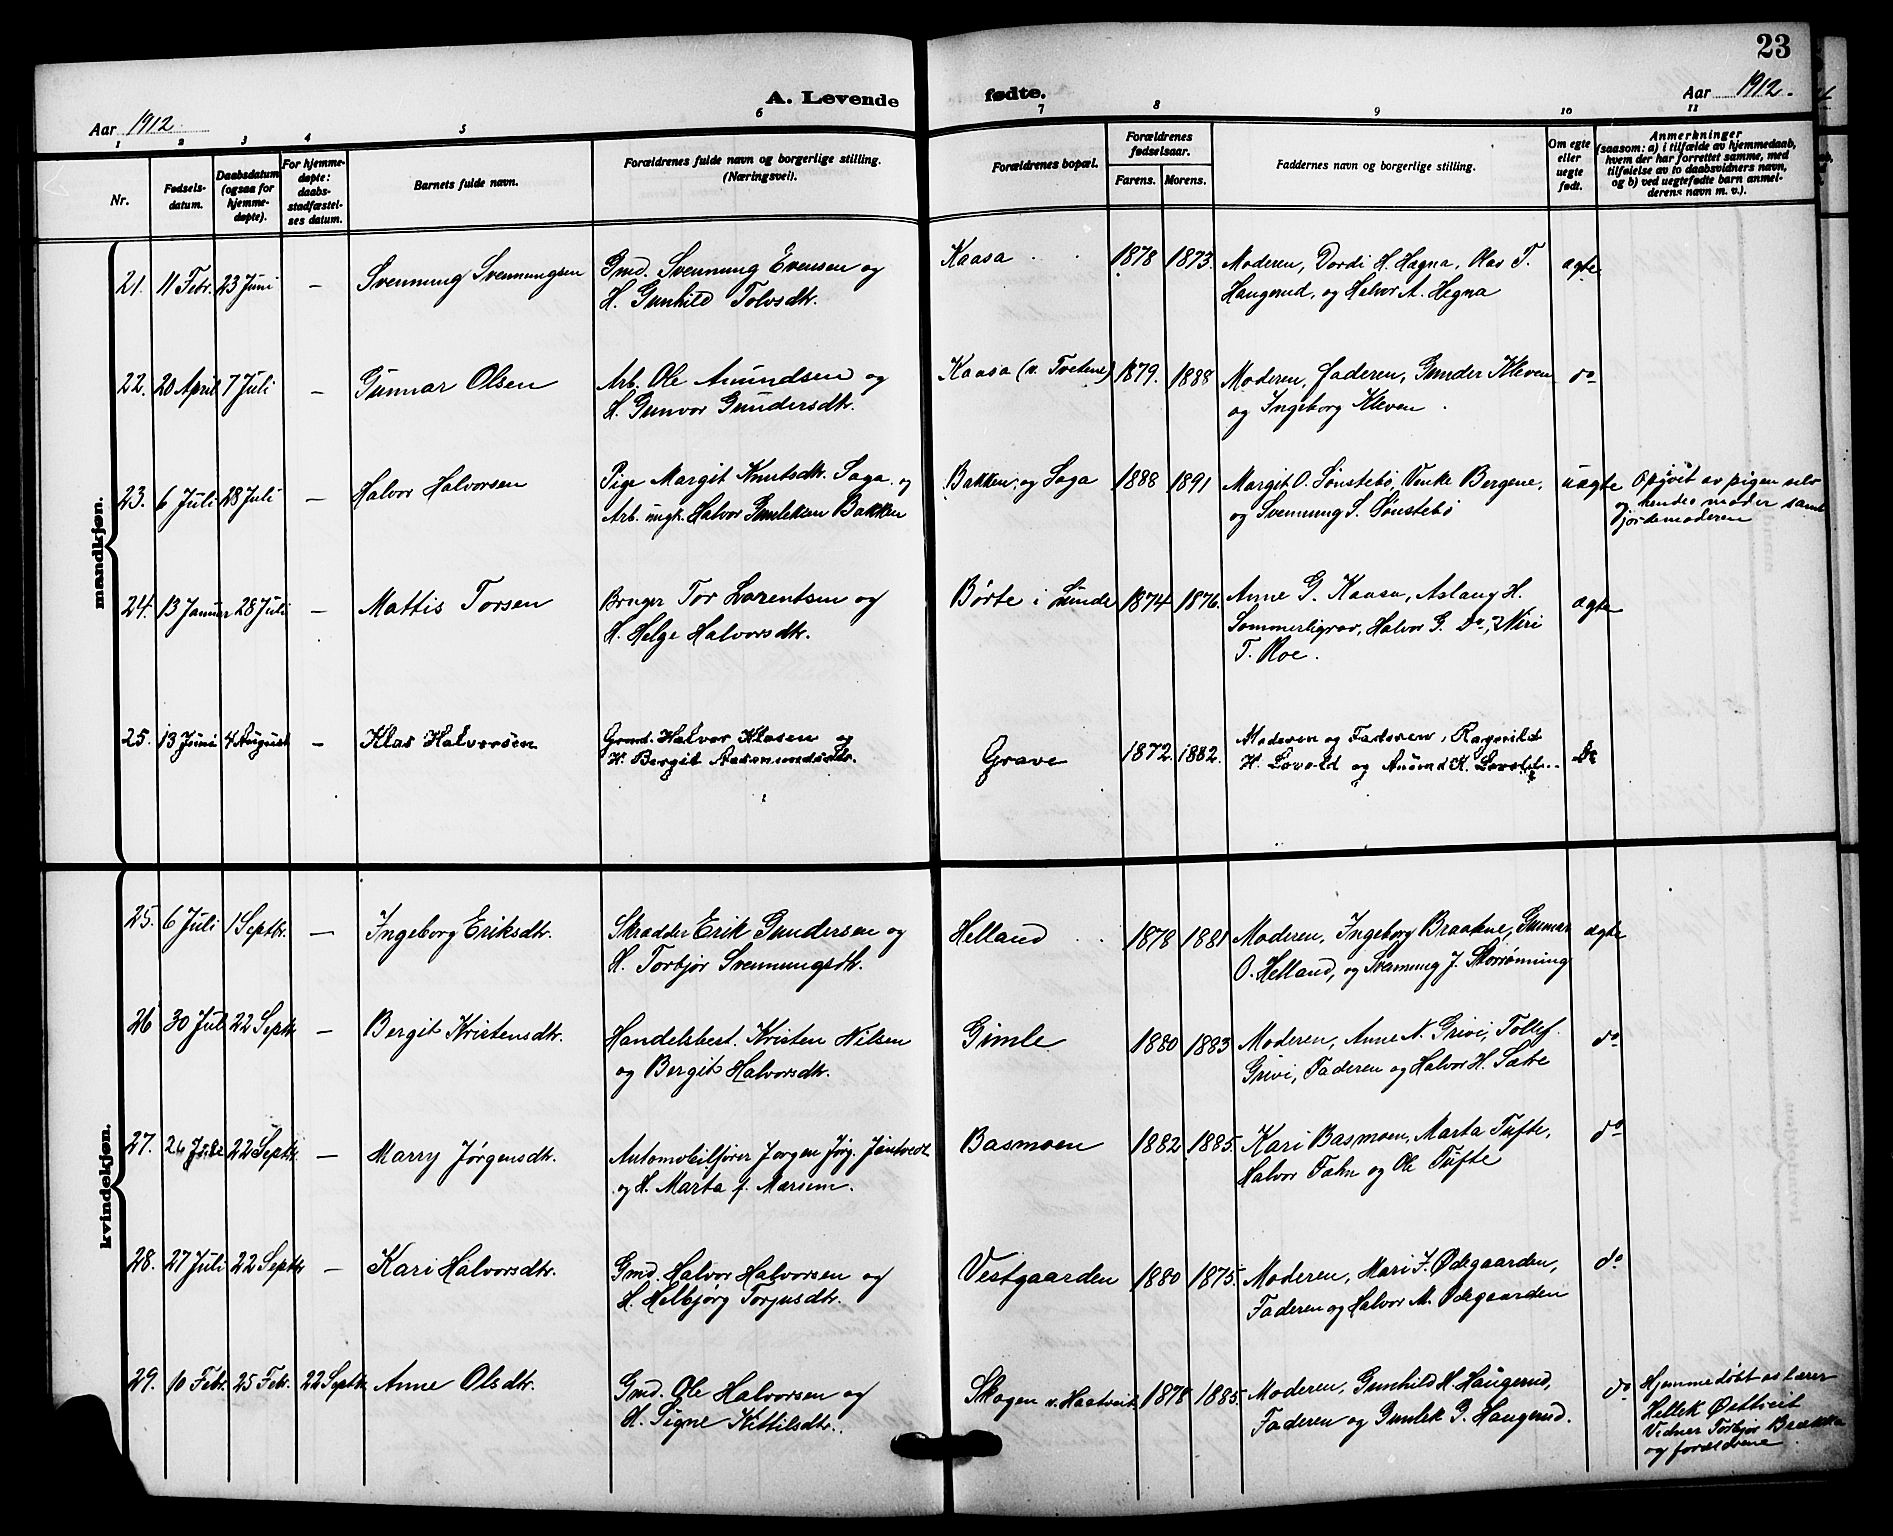 23
A. Levende fødte.
Aar 1912
Aar 1912.
1 2 3 4 5 6 7 8 9 10 11
Nr.
Fødsels-
datum.
Daabsdatum
(ogsaa for
hjemme-
døpte).
For hjemme-
døpte:
daabs-
stadfæstel-
ses datum.
Barnets fulde navn.
Forældrenes fulde navn og borgerlige stilling.
(Næringsvei).
Forældrenes bopæl.
Forældrenes
fødselsaar.
Farens. Morens.
Faddernes navn og borgerlige stilling.
Om egte
eller
uegte
født.
Anmerkninger
(saasom: a) i tilfælde av hjemmedaab,
hvem der har forrettet samme, med
tilføielse av to daabsvidners navn,
og b) ved uegtefødte barn anmel-
derens navn m. v.).
mandkjøn.
21. 11 Febr. 23 Juni – Svennung Svennungsen
Gmd. Svennung Evensen og
H. Gunhild Tolvsdtr.
Kaasa 1878 1873.
Moderen, Dordi H. Hegna, Olav T.
Haugerud, og Halvor A. Hegna
ægte
22. 20 April 7 Juli – Gunnar Olsen
Arb. Ole Amundsen og
H. Gunvor Gundersdtr.
Kaasa (v. Tveitene) 1879. 1888
Moderen, Faderen, Gunder Kleven
og Ingeborg Kleven.
do
23. 6 Juli 28 Juli – Halvor Halvorsen
Pige Margit Knutsdtr. Saga og
Arb. ungk. Halvor Gunleksen Bakken
Bakken og Saga 1888 1891
Margit O. Sønstebø, Venke Bergene,
og Svennung S. Sønstebø
uægte
Opgivet av pigen selv
og hendes moder samt
jordemoderen
24. 13 Januar 28 Juli – Mattis Torsen
Bruger Tor Lorentsen og
H. Helge Halvorsdtr.
Børte i Lunde 1874 1876.
Anne G. Kaasa, Aslaug H.
Sommerligrav, Halvor G. Do, Niri
T. Roe.
ægte
25. 13 Juni 4 August – Klas Halvorsen
Gmd. Halvor Klasen og
H. Bergit Aasmundsdtr.
Grave 1872. 1882.
Moderen og Faderen, Ragnild
H. Lovald og Amund K. Lovald.
Do
kvindekjøn.
25. 6 Juli 1 Septbr. – Ingeborg Eriksdtr.
Skrædder Erik Gundersen og
H. Torbjør Svennungsdtr.
Helland 1878 1881
Moderen, Ingeborg Braatene, Gunnar
O. Helland, og Svennung J.
ægte
26 30 Juli 22 Septbr – Bergit Kristensdtr.
Handelsbest. Kristen Nilsen
og Bergit Halvorsdtr.
Gimle 1880 1883
Moderen, Anne N. Grivi, Tollef
Grivi, Faderen og Halvor H. Satre
do
27. 22 Septbr. – Marry Jørgensdtr.
Automobilfører Jørgen Jørg. Jøntvedt
og H. Marta f.
Basmoen 1882 1885.
Kari Basmoen, Marta Tufte,
Halvor Fahn og Ole Tufte
do
28. 27 Juli 22 Septbr – Kari Halvorsdtr.
Gmd. Halvor Halvorsen og
H. Helbjørg Torjusdtr.
Vestgaarden 1880 1875.
Moderen, Mari J. Ødegaarden,
Faderen og Halvor M. Ødegaarden
do
29. 10 Febr. 25 Febr. 22 Septbr. Anne Olsdtr.
Gmd. Ole Halvorsen og
H. Signe Kittilsdtr.
Skogen v. Haatveit 1878 1885.
Moderen, Gunhild H. Haugerud,
Faderen og Gunlek G. Haugerud.
do
Hjemmedøbt av lærer
Hellek Østtveit
Vidner Torbjør Brække
og forældrene.